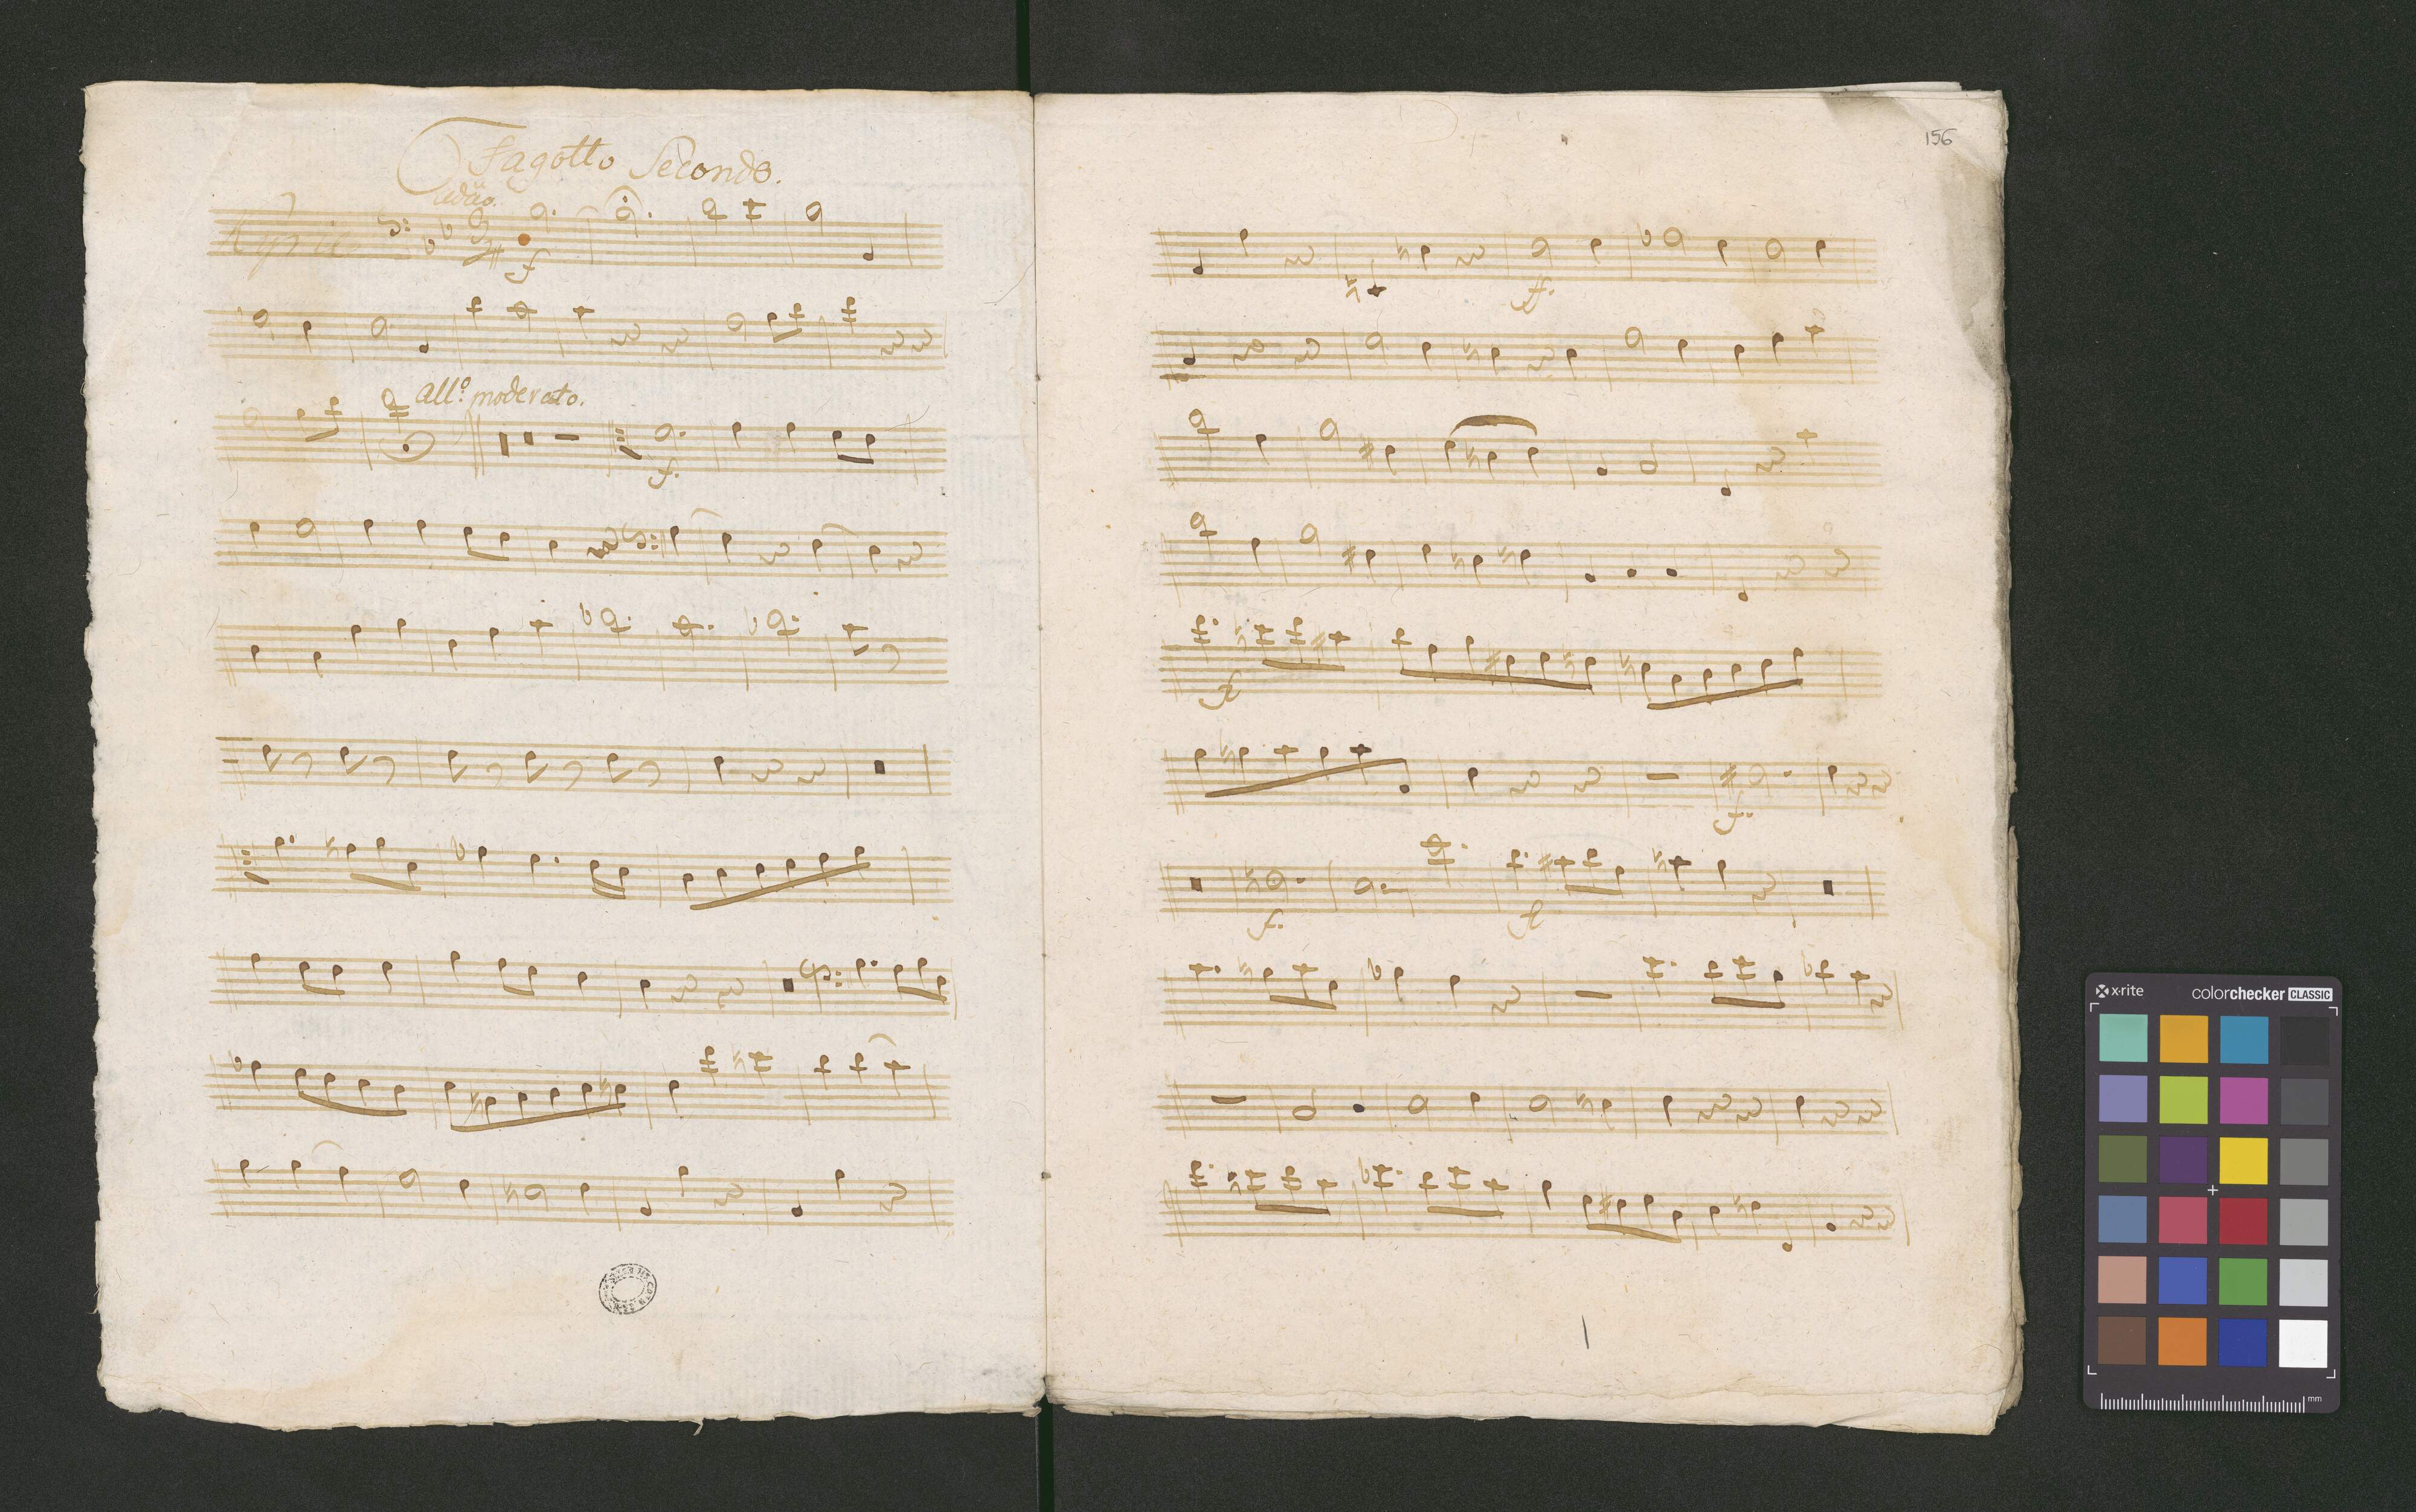 Fagotto Secondo.
adão.
Kyrie
f
all.º moderato.
f.
156
ff.
f
f.
f.
f
x·rite colorchecker CLASSIC
mm